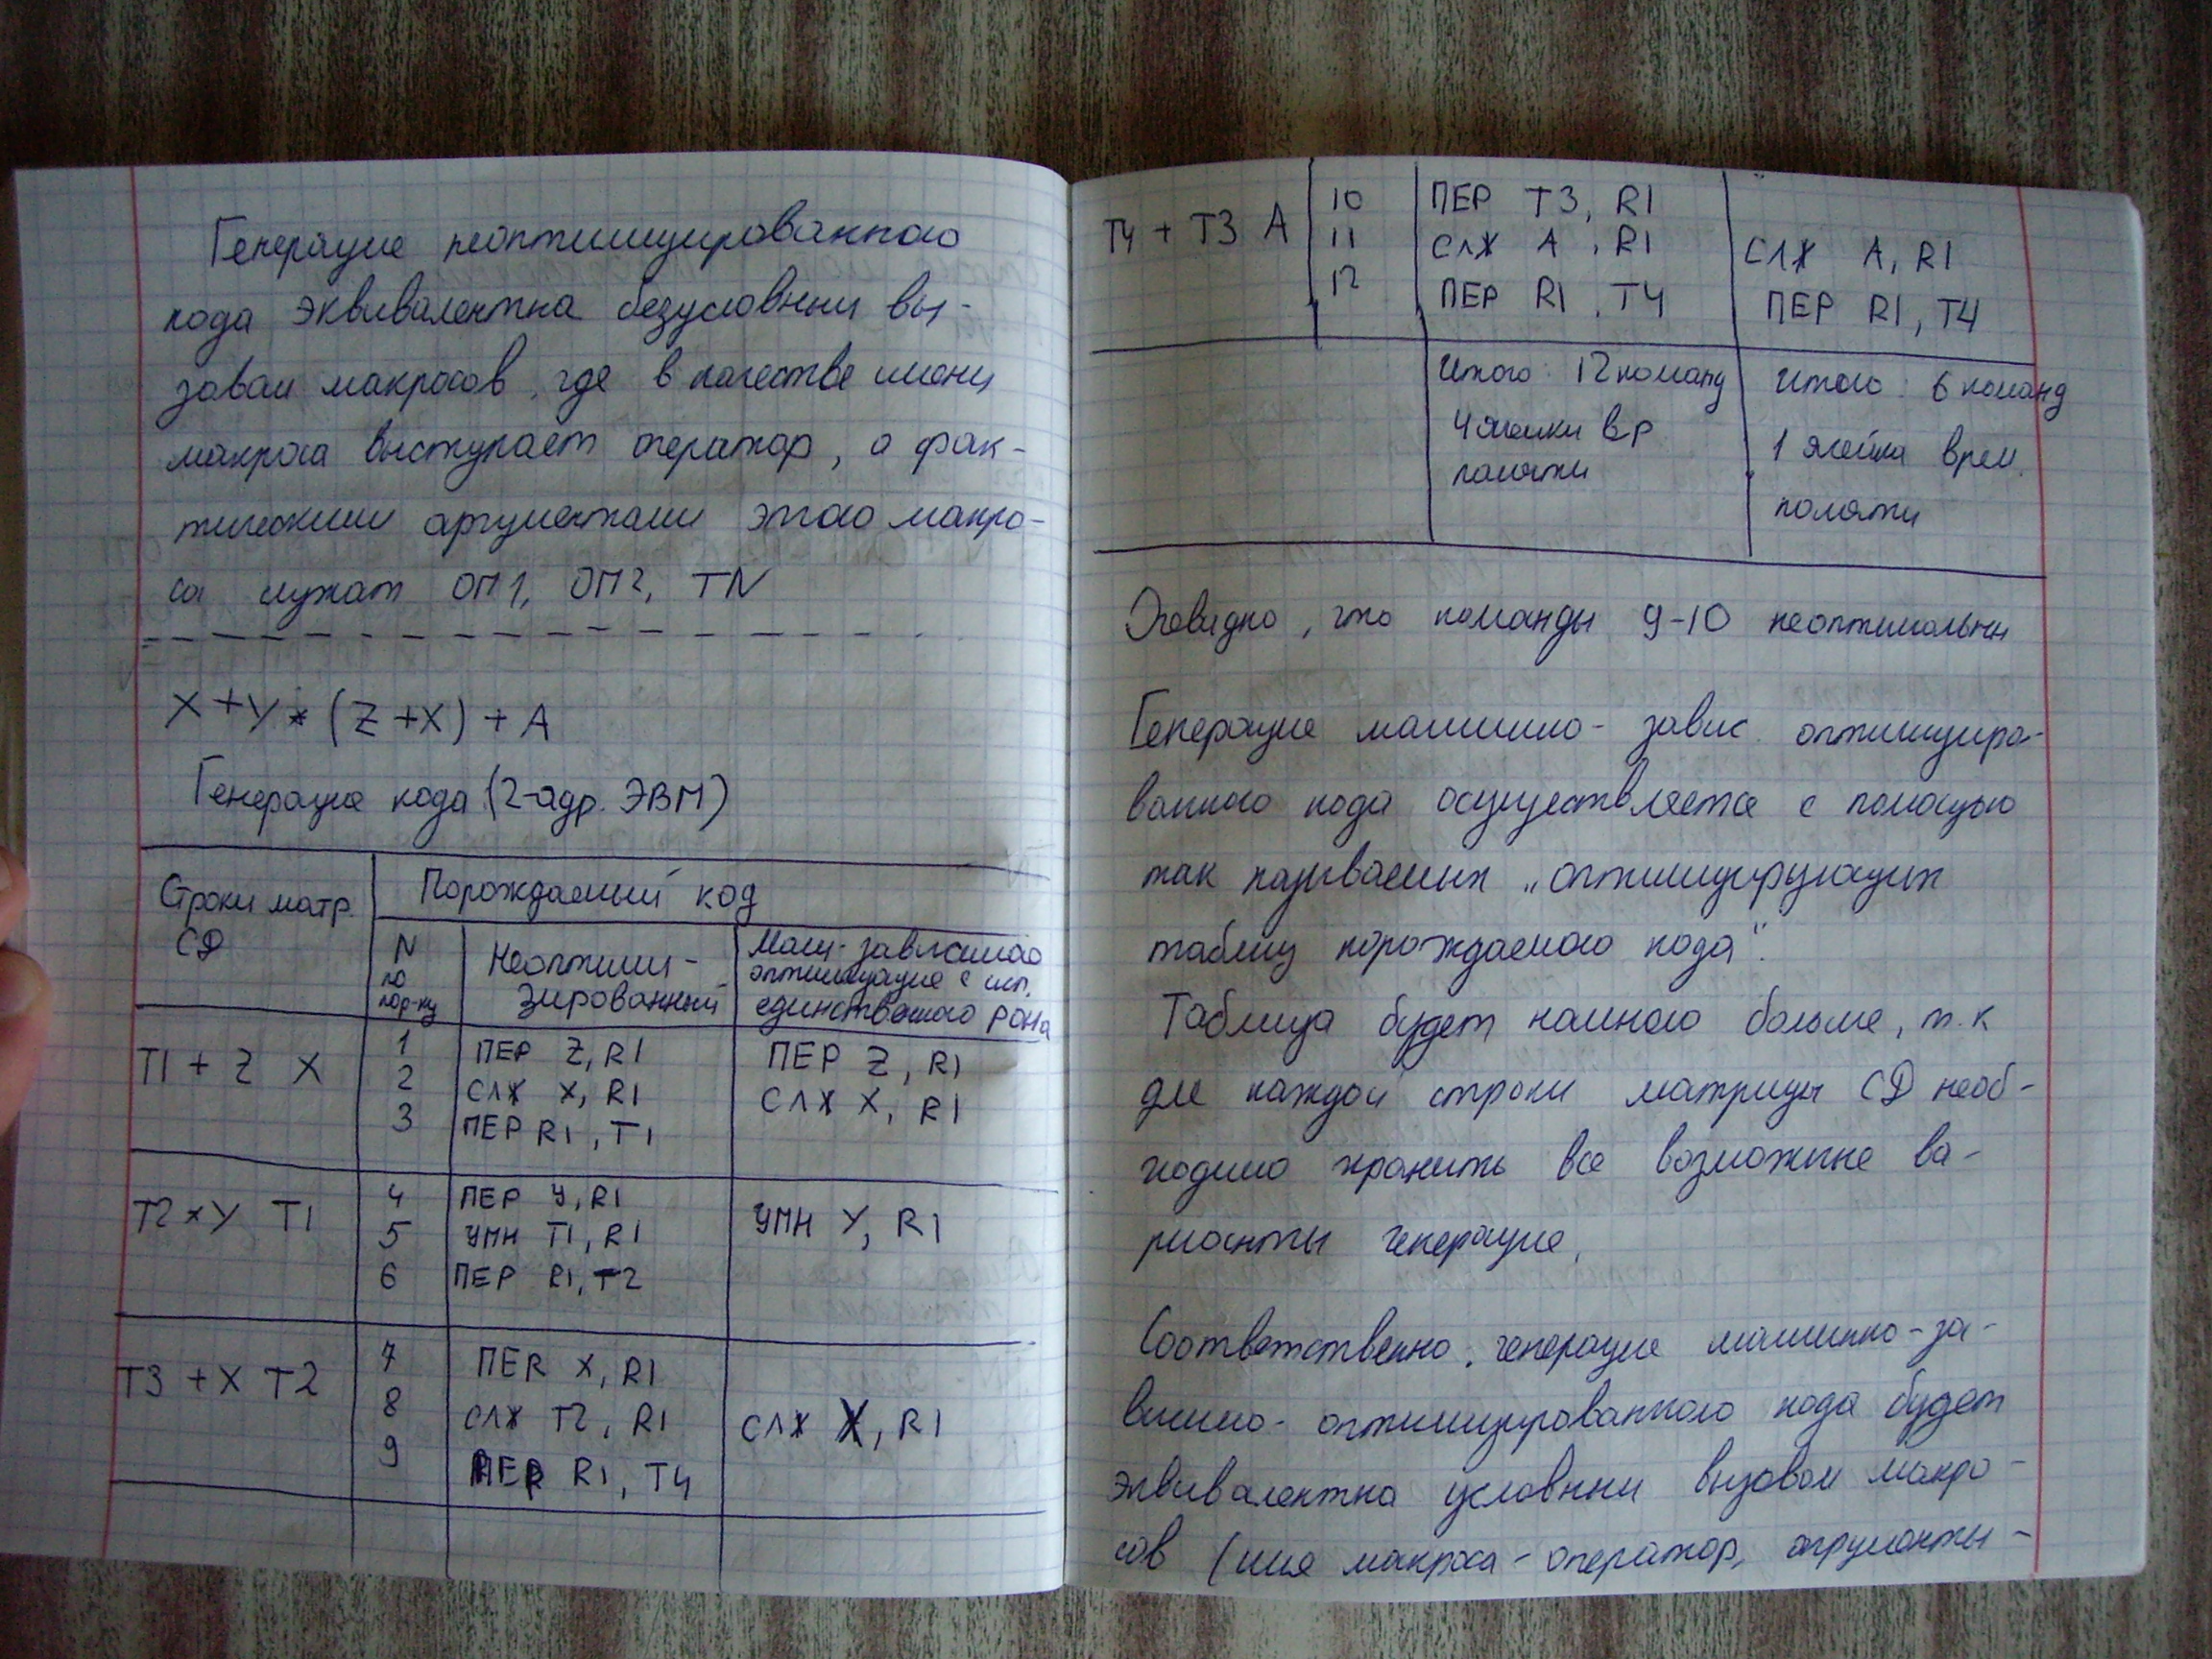 Генерация неоптимизированного
кода эквивалентна безусловным вы-
зовам макросов, где в качестве имени
макроса выступает оператор, а фак-
тическими аргументами этого макро-
са служат ОП1, ОП2, TN
X+Y*(Z+X)+A
Генерация кода (2-адр. ЭВМ)
Строки матр. СД
Порождаемый код
N по пор-ку
Неоптими-
зированный
Маш-зависимая
оптимизация с исп.
единственного РОНа
T1 + Z X
1 ПЕР Z, R1 ПЕР Z, R1
2 СЛЖ X, R1 СЛЖ X, R1
3 ПЕР R1, T1
T2 * Y T1
4 ПЕР Y, R1 УМН Y, R1
5 УМН T1, R1
6 ПЕР R1, T2
T3 + X T2
7 ПЕР X, R1
8 СЛЖ T2, R1 СЛЖ X, R1
9 ПЕР R1, T4
T4 + T3 A
10 ПЕР T3, R1
11 СЛЖ A, R1 СЛЖ A, R1
12 ПЕР R1, T4 ПЕР R1, T4
Итого: 12 команд Итого: 6 команд
4 ячейки вр 1 ячейка врем.
памяти памяти
Очевидно, что команды 9-10 неоптимальны
Генерация машинно-завис. оптимизиро-
ванного кода осуществляется с помощью
так называемых „оптимизирующих
таблиц порождаемого кода".
Таблица будет намного больше, т.к
для каждой строки матрицы СД необ-
ходимо хранить все возможные ва-
рианты генерация.
Соответственно, генерация машинно-за-
висимо-оптимизированного кода будет
эквивалентна условным вызовам макро-
сов (имя макроса-оператор, аргументы-